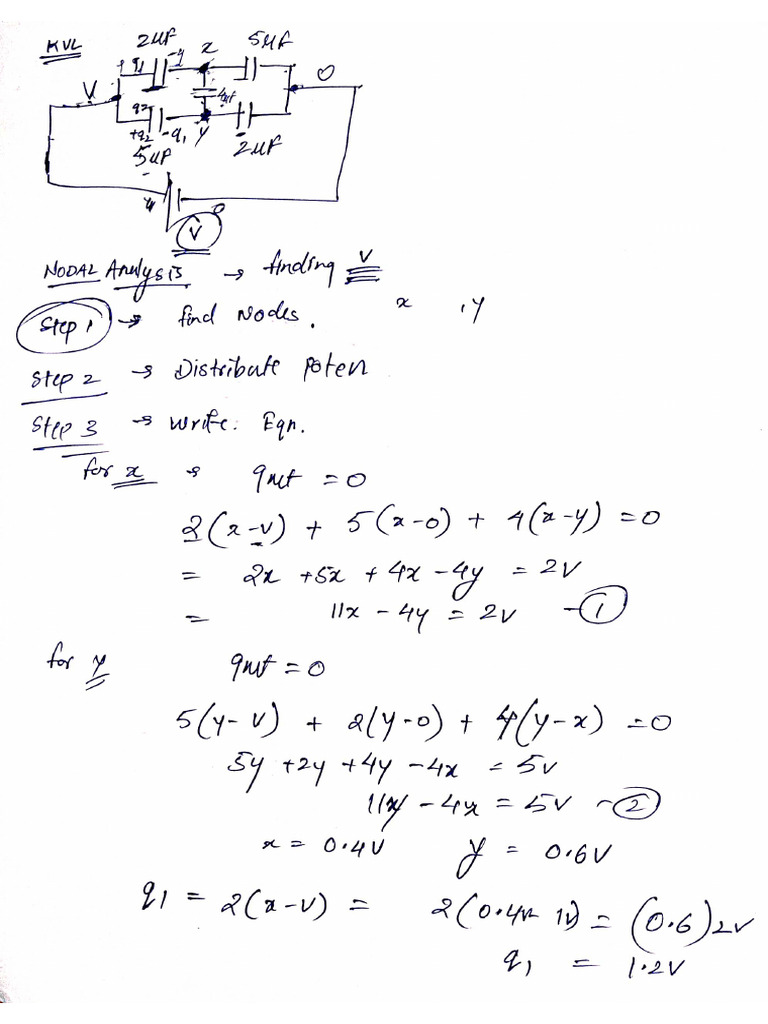 KVL
2μF x 5μF
+q1 -q
V 4μf 0
q2
+q2 -q1 y
5μF 2μF
0
V
NODAL Analysis → finding V
x , y
Step 1 → find Nodes.
Step 2 → Distribute Poten
Step 3 → Write: Eqn.
for x → qnet = 0
2(x-v) + 5(x-0) + 4(x-y) = 0
= 2x + 5x + 4x - 4y = 2V
= 11x - 4y = 2V - ①
for y qnet = 0
5(y-V) + 2(y-0) + 4(y-x) = 0
5y + 2y + 4y - 4x = 5V
11y - 4x = 5V - ②
x = 0.4V y = 0.6V
q1 = 2(x-V) = 2(0.4V - 1V) = (0.6)2V
q1 = 1.2V